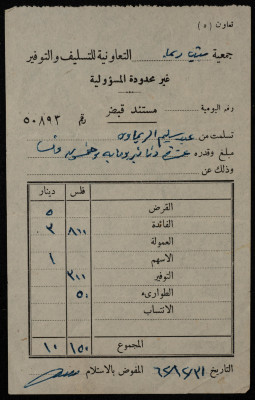 تعاون (٥)
جمعية بيت ريما التعاونية للتسليف والتوفير
غير محدودة المسؤولية
رقم اليومية مستند قبض رقم ٥٠٨٩٣
تسلمت من عبد سليم الريماوي
مبلغ وقدره عشرة دنانير ومايه وخمسون فلسا
وذلك عن
فلس دينار
القرض ٥
الفائدة ٨٠٠ ٣
العمولة
الاسهم ١
التوفير ٣٠٠
الطوارىء ٥٠
الانتساب
المجموع ١٥٠ ١٠
التاريخ ٦٢/١٢/٣١ المفوض بالاستلام